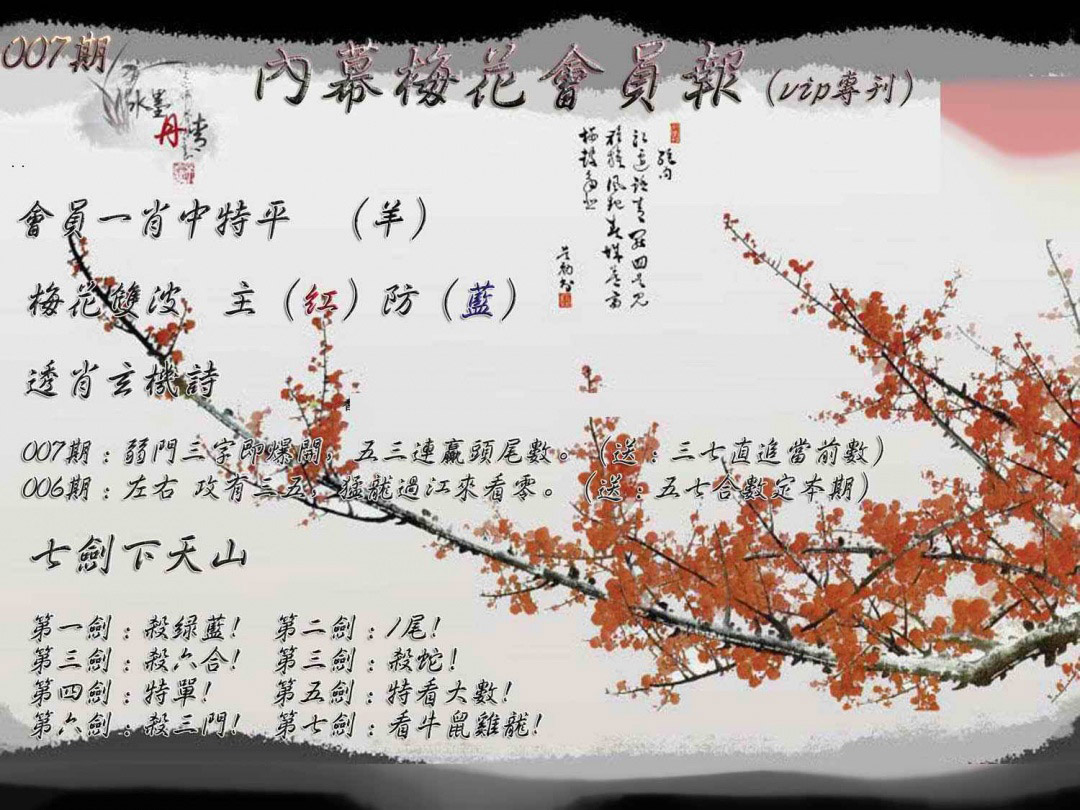 007期
內幕梅花會員報(vip專刊)
水墨
丹
情
會員一肖中特平 （羊）
梅花雙波 主（紅）防（藍）
透肖玄機詩
007期：弱門三字即爆開，五三連贏頭尾數。（送：三七直進當前數）
006期：左右 攻有三五，猛龍過江來看零。（送：五七合數定本期）
七劍下天山
第一劍：殺绿藍! 第二劍：1尾!
第三劍：殺六合! 第三劍：殺蛇!
第四劍：特單! 第五劍：特看大數!
第六劍：殺三門! 第七劍：看牛鼠雞龍!